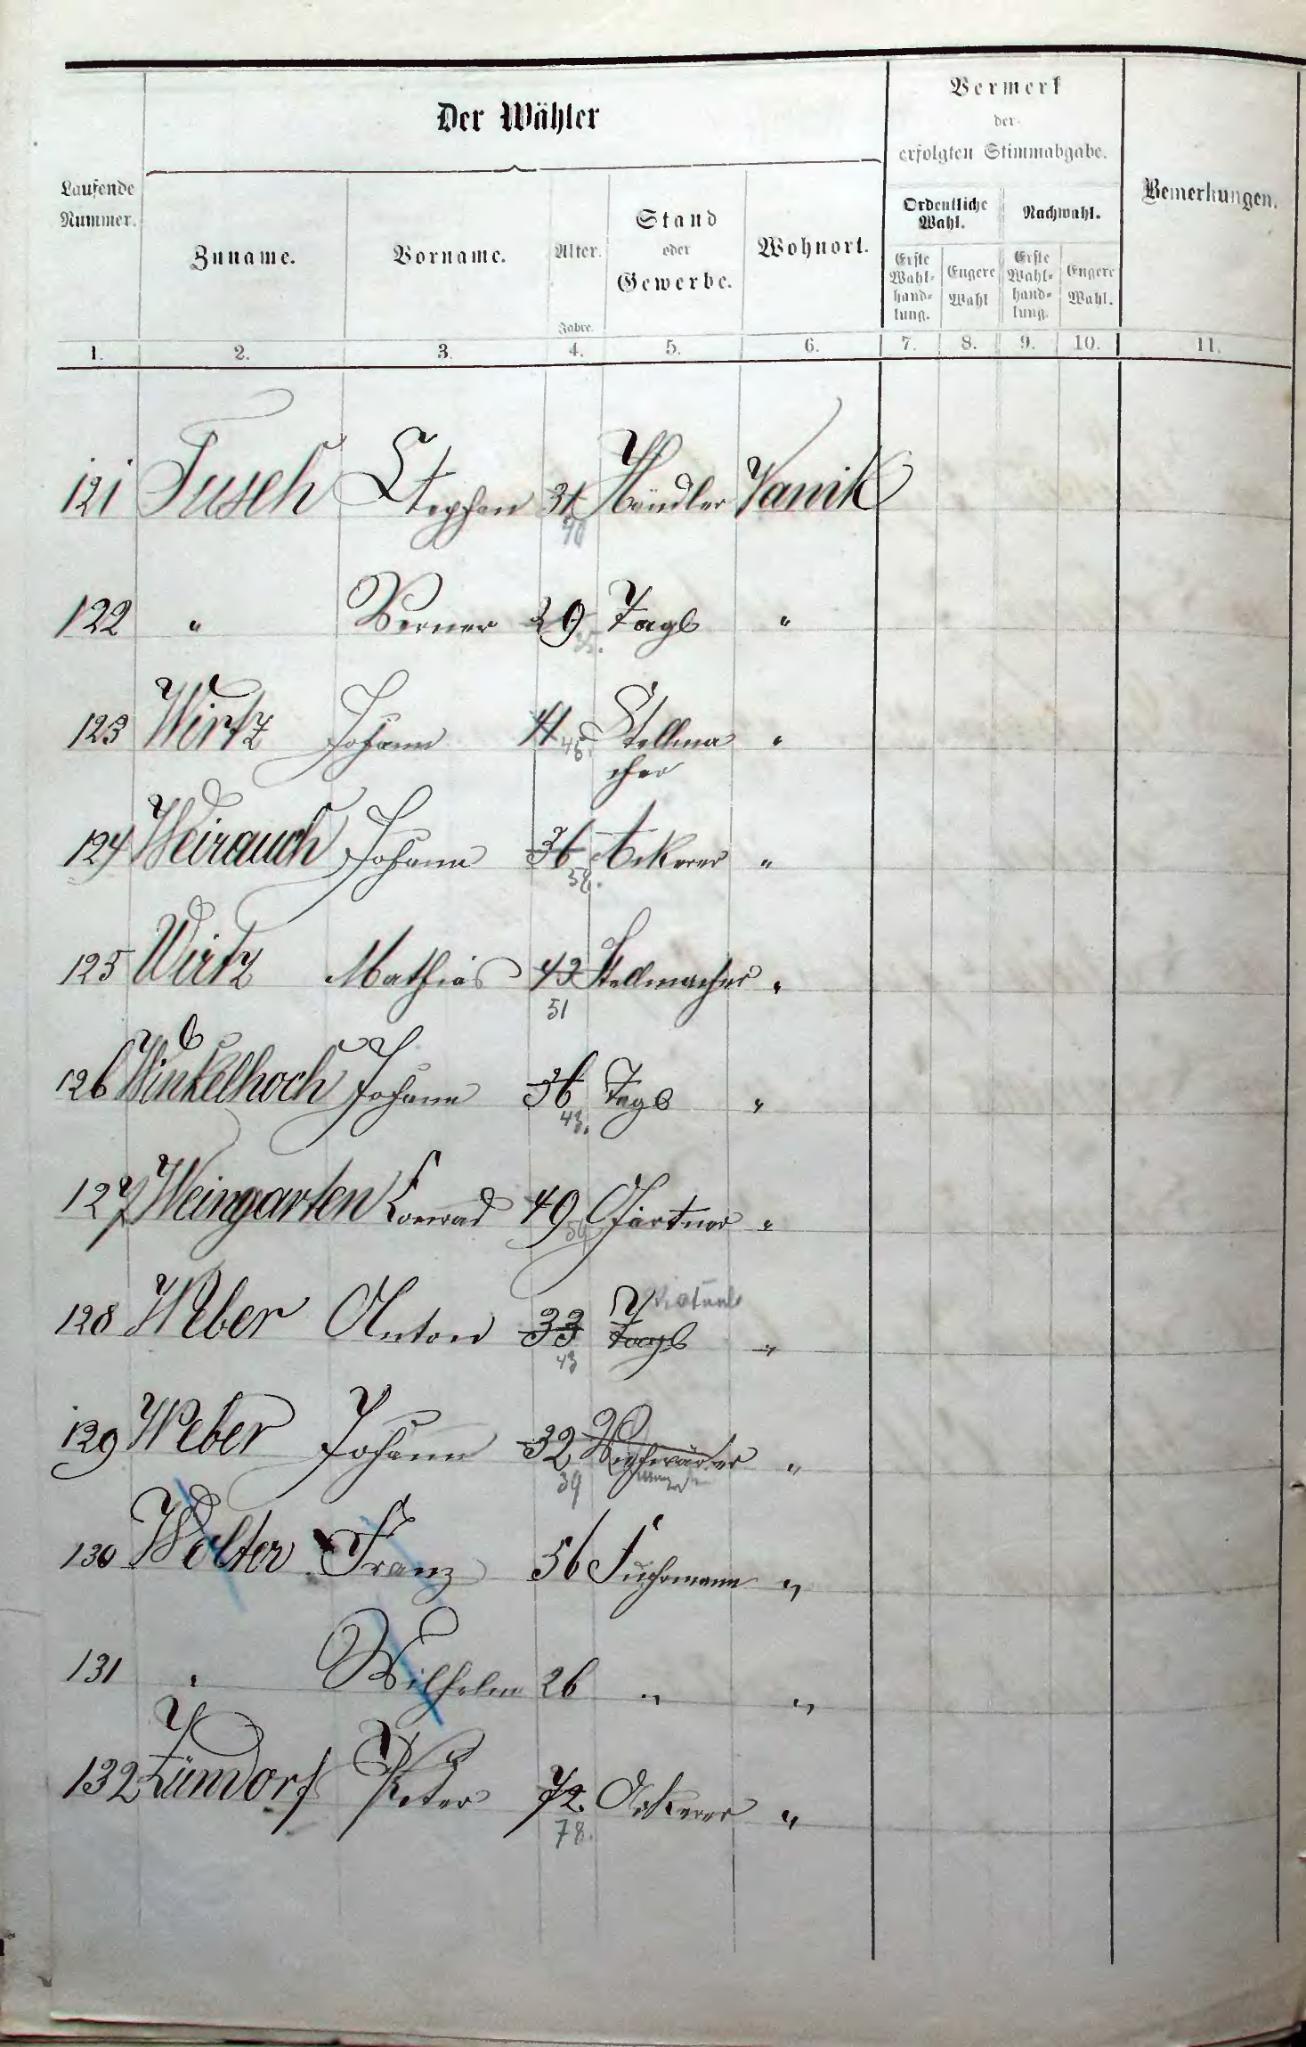 Der Wähler
Vermerk
der
erfolgten Stimmabgabe.
Laufende
Nummer.
Zuname.
Vorname.
Alter.
Jahre.
Stand
oder
Gewerbe.
Wohnort.
Ordentliche
Wahl.
Nachwahl.
Erste
Wahl-
hand-
lung.
Engere
Wahl
Erste
Wahl-
hand-
lung.
Engere
Wahl.
Bemerkungen.
1. 2. 3. 4. 5. 6. 7. 8. 9. 10. 11.
121 Tusch Stephan 31 Händler Vanik
122 " Werner 29 Tagl "
123 Wirtz Johann 41 Stellma "
48. cher
124 Weirauch Johann 36 Ackerer "
58.
125 Wirtz Mathias 42 Stellmacher "
51
126 Winkelhoch Johann 36 Tagl "
43.
127 Weingarten Conrad 49 Gärtner "
128 Weber Anton 33 Tagl "
43
129 Weber Johann 32 "
39
130 Wolter Franz 56 Fuhrmann "
131 " Wilhelm 26 " "
132 Zündorf Peter 72. Ackerer "
78.